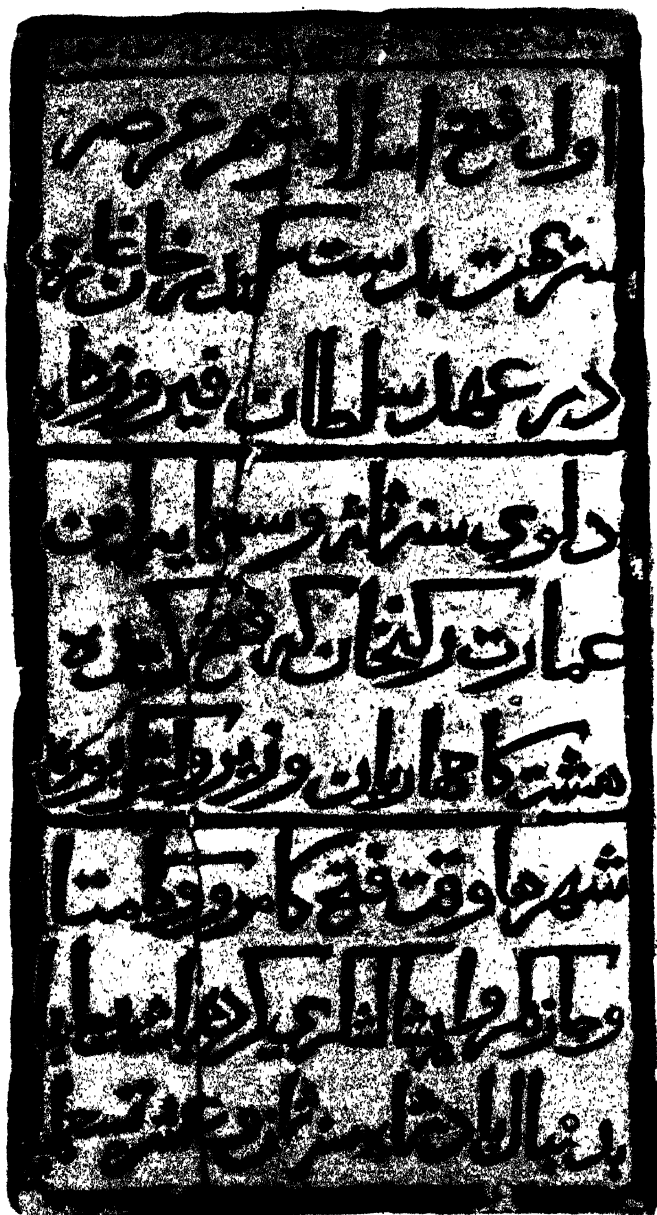 اول فتح اسلام شهر عرصه
سریهت بدست سکندر خان غازی
در عهد سلطان فیروز شاه
دلوی سنه ثلثه وسبعمایه این
عمارت رکنخان که فتح کننده
هشت کامهاریان وزیر و لشکر بوده
شهرها وقت فتح کامرو و کامتا
و جازنگر و اوریشا لشکری کرده باشند جابجا
بدنبال پادشاه سنه ثمان و عشر تسعمایه